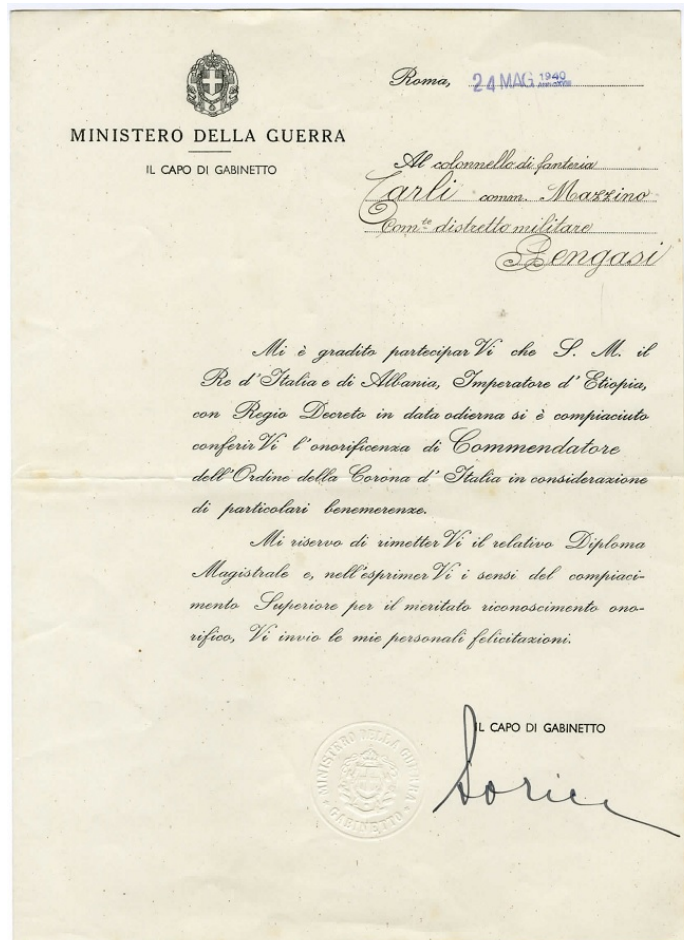 MINISTERO DELLA GUERRA
IL CAPO DI GABINETTO
Roma, 24 MAG 1940
Al colonnello di fanteria
Carli comm. Mazzino
Com.te distretto militare
Bengasi
Mi è gradito partecipar Vi che S. M. il
Re d'Italia e di Albania, Imperatore d'Etiopia,
con Regio Decreto in data odierna si è compiaciuto
conferir Vi l'onorificenza di Commendatore
dell'Ordine della Corona d'Italia in considerazione
di particolari benemerenze.
Mi riservo di rimetter Vi il relativo Diploma
Magistrale e, nell'esprimer Vi i sensi del compiaci-
mento Superiore per il meritato riconoscimento ono-
rifico, Vi invio le mie personali felicitazioni.
IL CAPO DI GABINETTO
MINISTERO DELLA GUERRA
GABINETTO